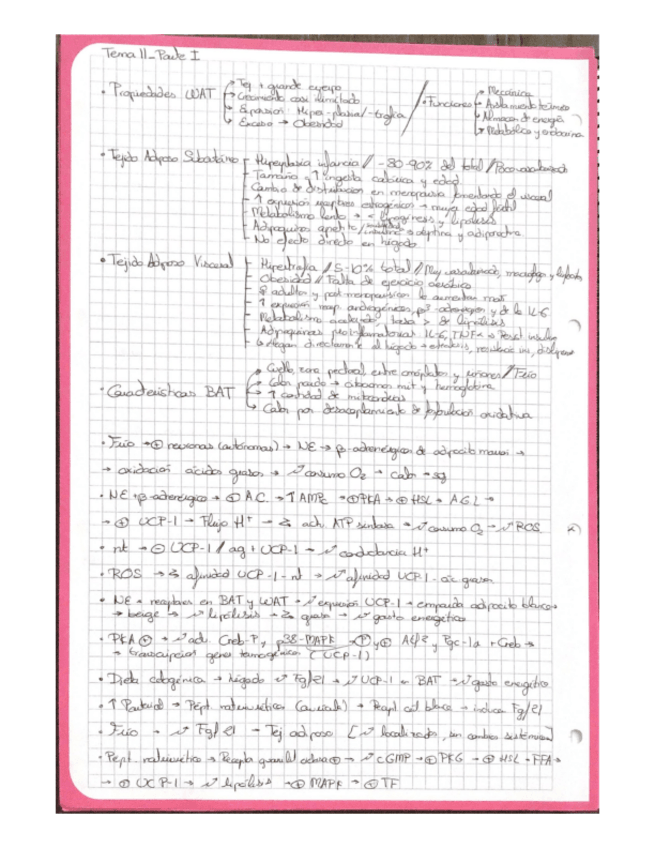 Tema 11_Parte I
· Propiedades WAT
Tej + grande cuerpo
Crecimiento casi ilimitado
Expansión: Hiper-plasia/-trofia
Exceso → Obesidad
· Funciones
Mecánica
Aislamiento térmico
Almacén de energía
Metabólico y endocrino
· Tejido Adiposo Subcutáneo
Hiperplasia infancia // ~80-90% del total / Poco vascularizado
Tamaño ↑ ingesta calórica y edad
Cambio de distribución en menopausia fomentando el visceral
↑ expresión receptores estrogénicos → mujer edad fértil
Metabolismo lento → < lipogénesis y lipólisis
Adipoquinas apetito / leptina y adiponectina
No efecto directo en hígado
· Tejido Adiposo Visceral
Hipertrofia / 5-10% total / Muy vascularizado, macrófagos y
Obesidad // Falta de ejercicio aeróbico
♂ adultos y post-menopáusicas lo aumentan más
↑ expresión recep. androgénicos, β3 adrenérgicos y de la IL-6
Metabolismo acelerado, tasa > de lipólisis
Adipoquinas proinflamatorias IL-6, TNFα → Resist insulina
Llegan directamente al hígado → resistencia ins,
· Características BAT
Cuello, zona pectoral, entre omóplatos y riñones // Frío
Color pardo → citocromos mit y hemoglobina
↑ cantidad de mitocondrias
Calor por desacoplamiento de fosforilación oxidativa
· Frío → ⊕ neuronas (autónomas) → NE → β-adrenérgicos de adipocito marrón →
→ oxidación ácidos grasos → consumo O₂ → calor → sg
· NE + β-adrenérgico → ⊕ AC → ↑ AMPc → ⊕ PKA → ⊕ HSL → AGL →
→ ⊕ UCP-1 → Flujo H⁺ → act. ATP sintasa → consumo O₂ → ROS
· nt → ⊖ UCP-1 / ag + UCP-1 → conductancia H⁺
· ROS → afinidad UCP-1 - nt → afinidad UCP1 - ác. graso
· NE + receptores en BAT y WAT → expresión UCP-1 → adipocito blanco →
→ beige → lipólisis → grasa → gasto energético
· PKA ⊕ → act. Creb-P, p38-MAPK → y Pgc-1a + Creb →
→ transcripción genes termogénicos (UCP-1)
· Dieta cetogénica → hígado Fgf21 → UCP-1 en BAT → gasto energético
· ↑ → Pept. natriuréticos → Recept cél blanca → induce Fgf21
· Frío → Fgf21 → Tej adiposo [localizado, sin cambios sistémicos]
· Pept. natriurético → Receptor guanilil ciclasa ⊕ → cGMP → ⊕ PKG → ⊕ HSL → FFA →
→ ⊕ UCP-1 → lipólisis → ⊕ MAPK → ⊕ TF